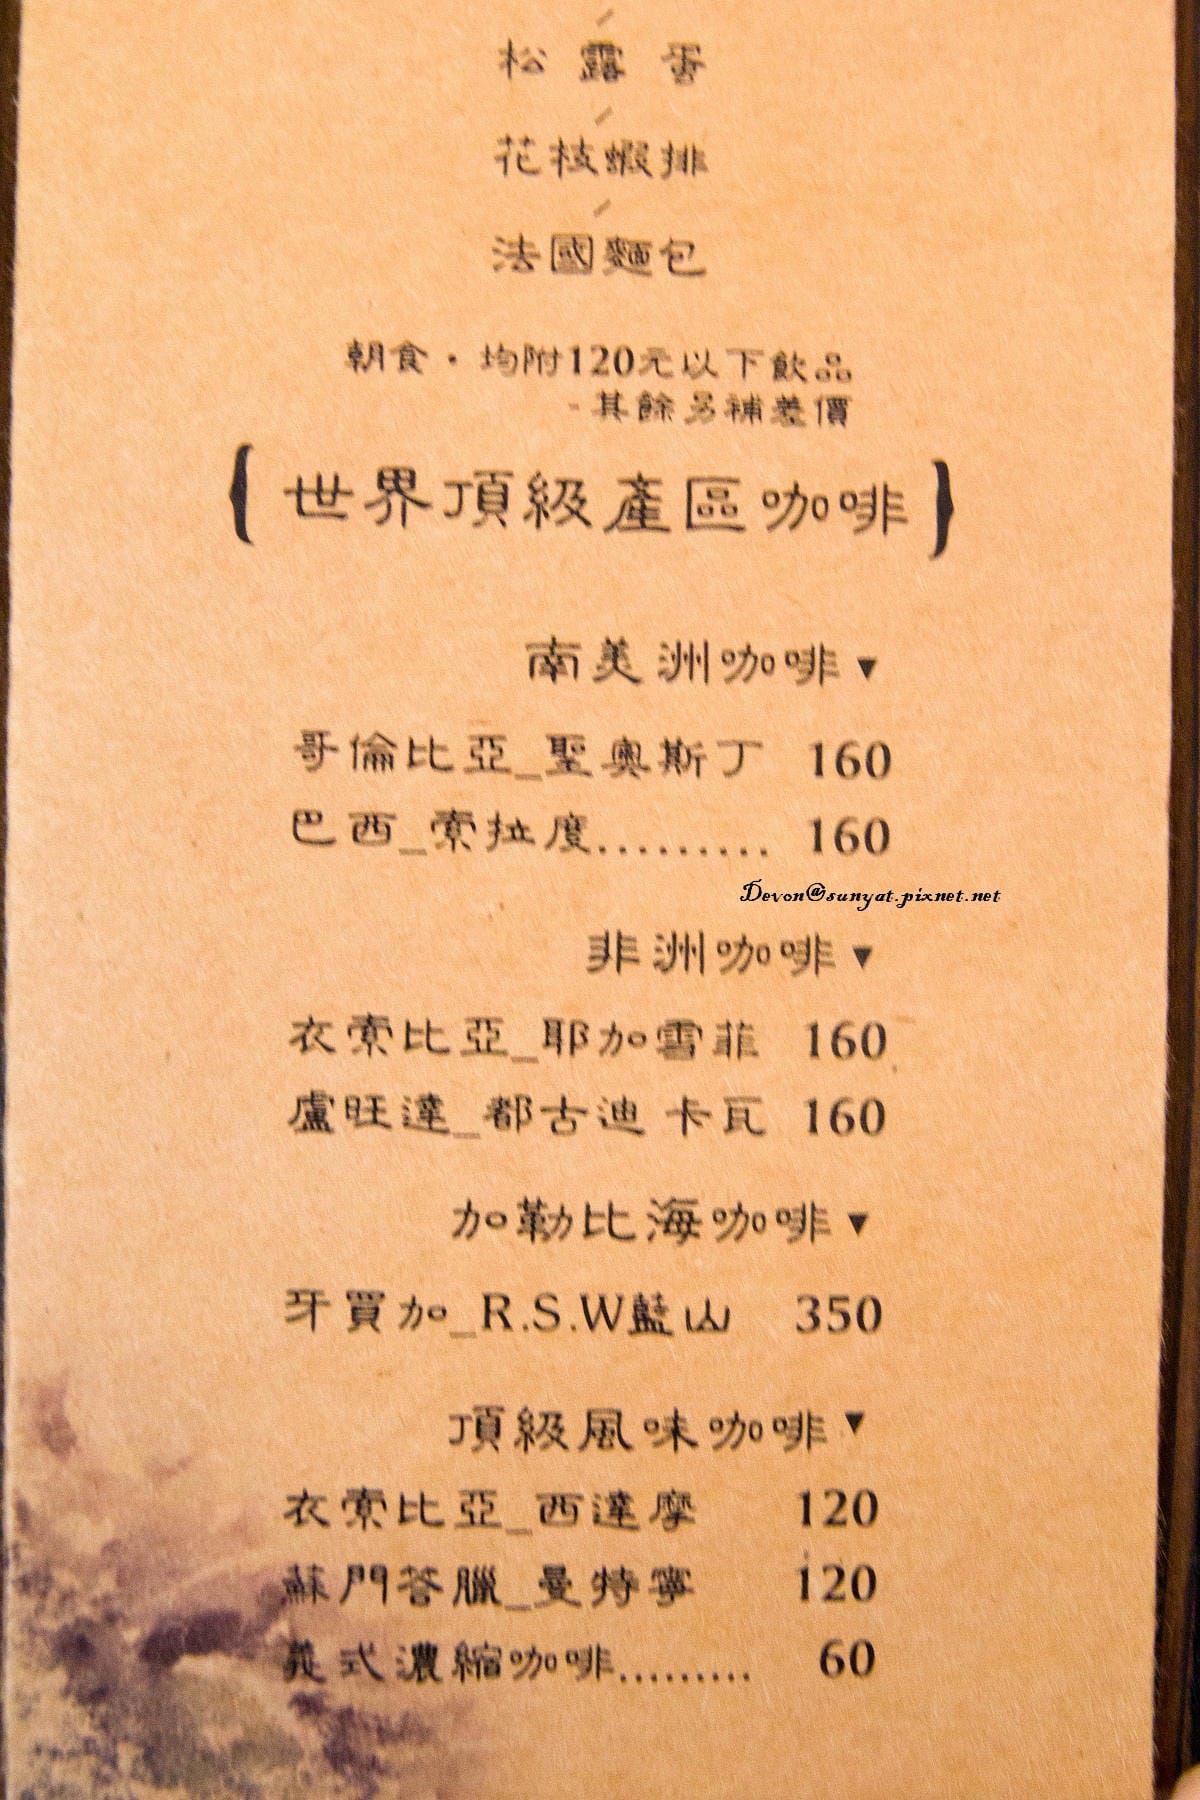 松露蛋
花枝蝦排
法國麵包
朝食・均附120元以下飲品
-其餘另補差價
{世界頂級產區咖啡}
南美洲咖啡▼
哥倫比亞_聖奧斯丁 160
巴西_索拉度......... 160
Devon@sunyat.pixnet.net
非洲咖啡▼
衣索比亞_耶加雪菲 160
盧旺達_都古迪卡瓦 160
加勒比海咖啡▼
牙買加_R.S.W藍山 350
頂級風味咖啡▼
衣索比亞_西達摩 120
蘇門答臘_曼特寧 120
義式濃縮咖啡......... 60